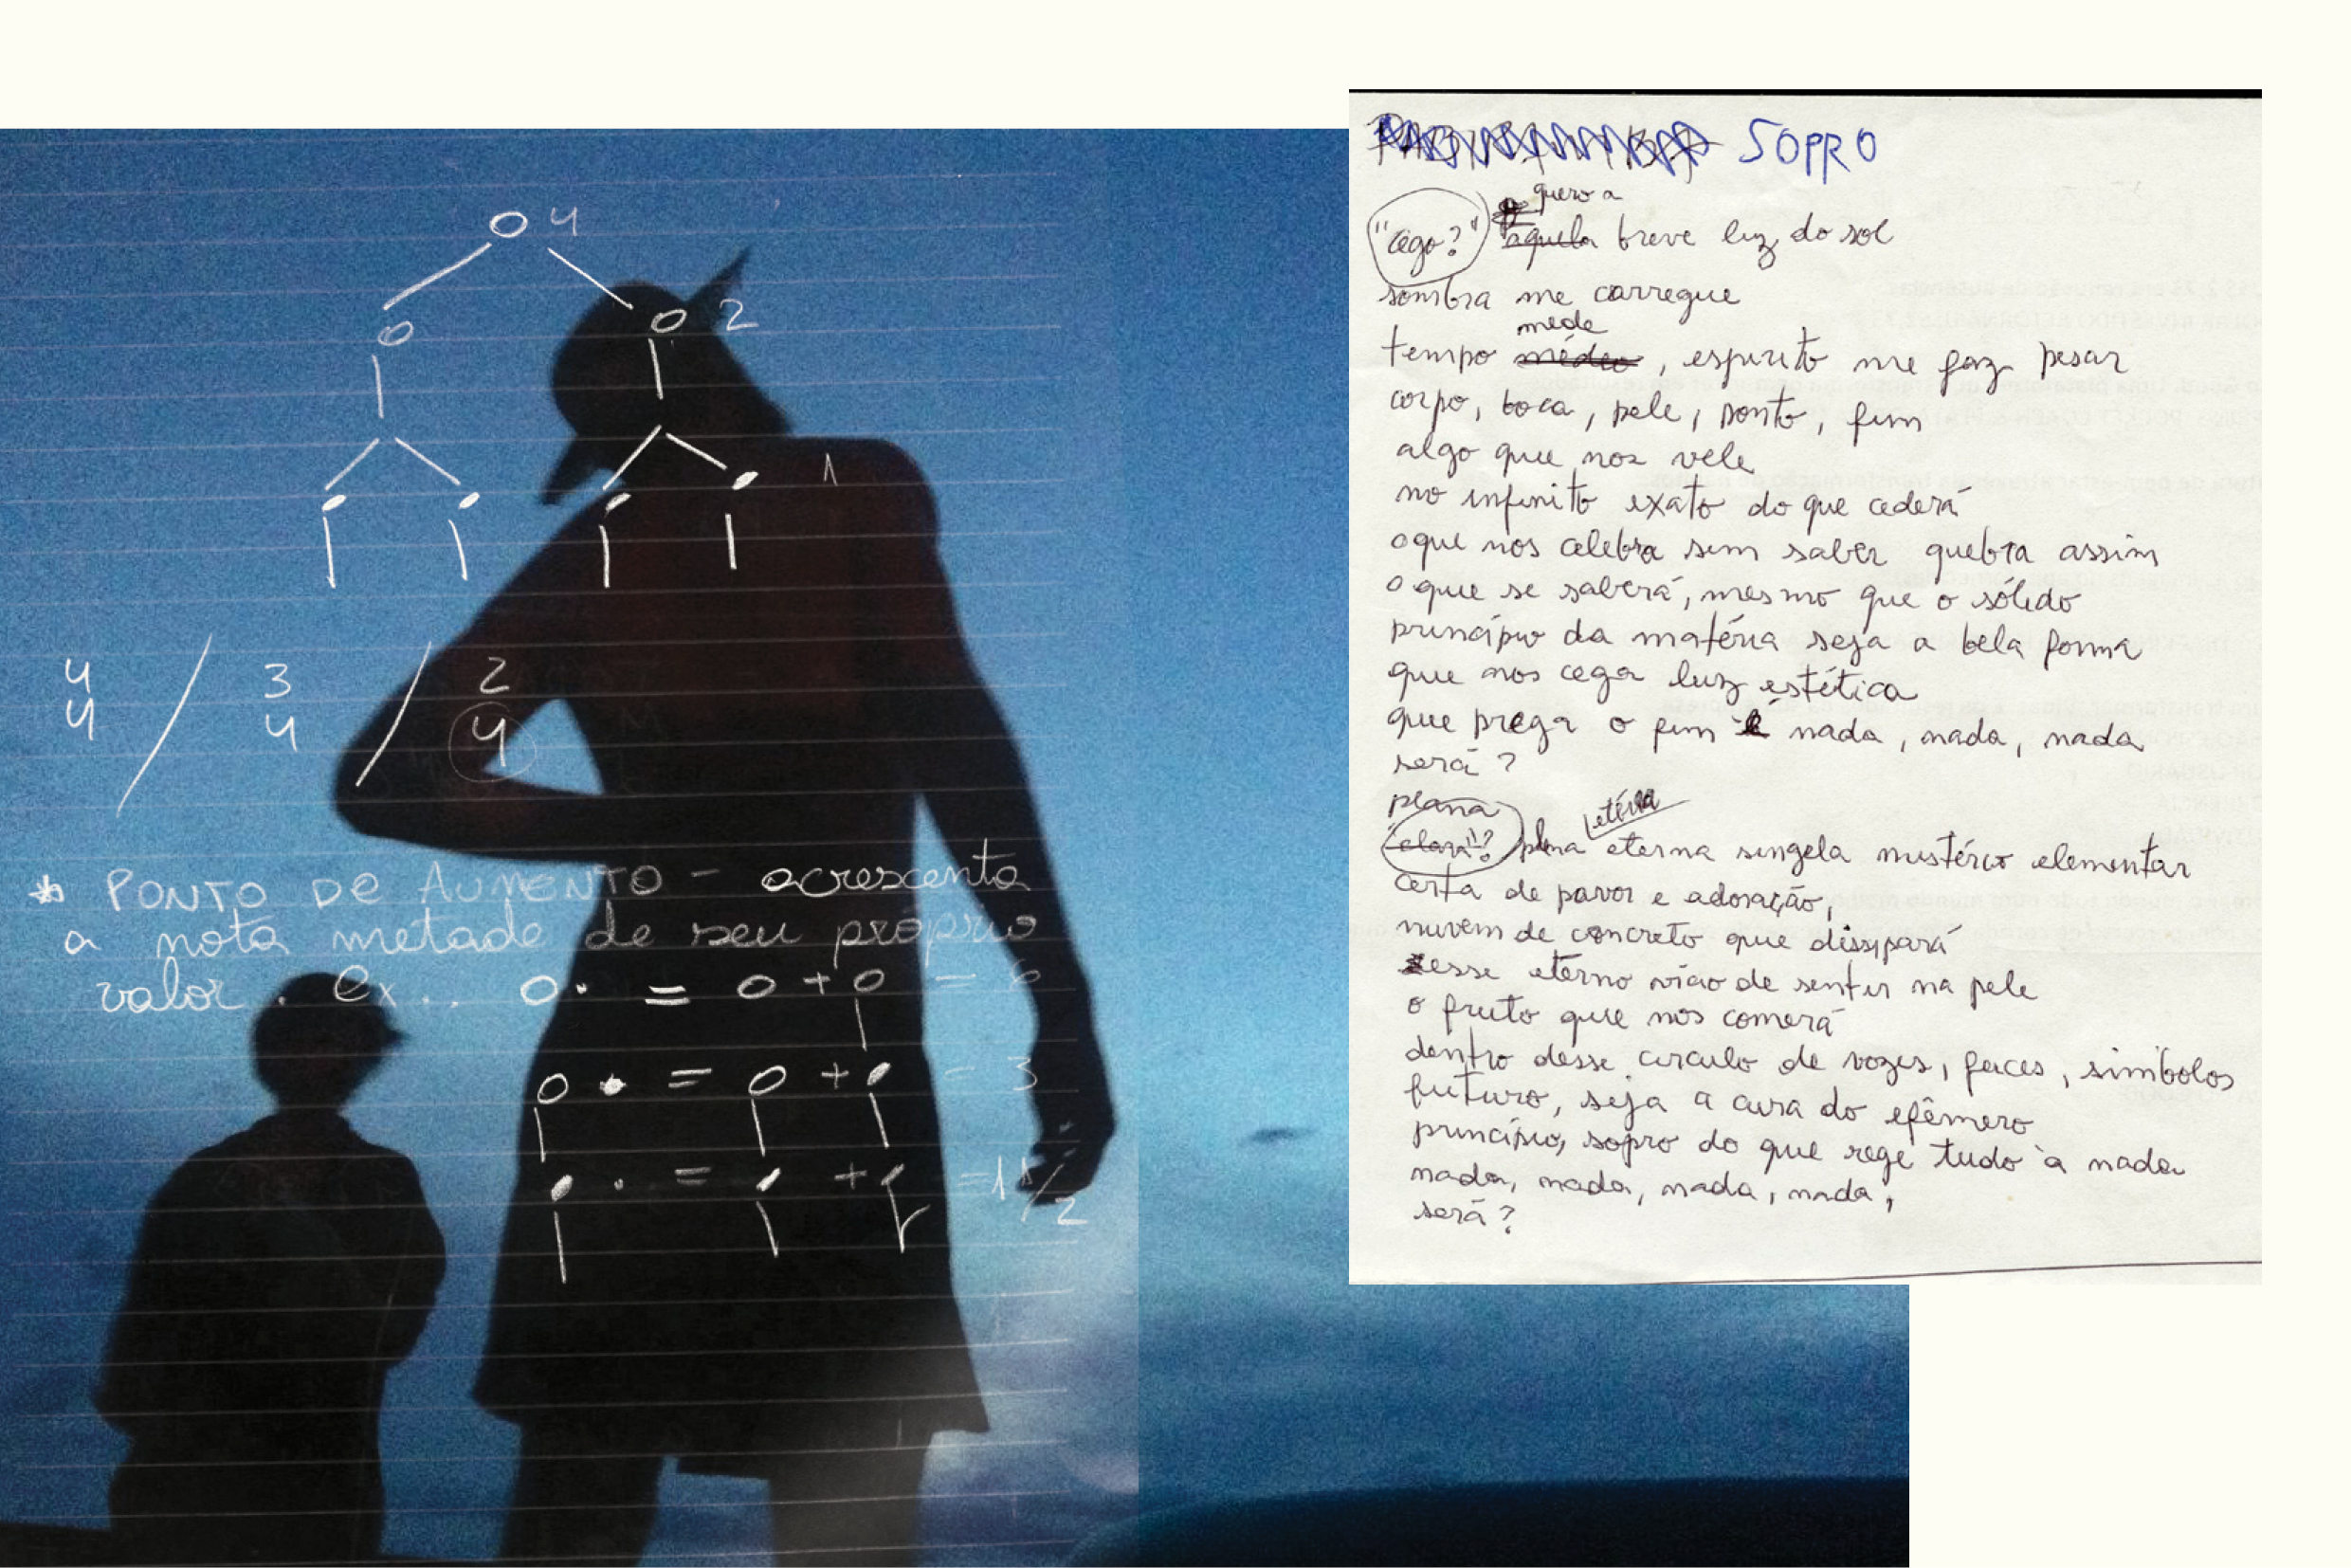 O 4
O O 2
1
4 / 3 / 2
4 4 4
* PONTO DE AUMENTO - acrescenta
a nota metade de seu próprio
valor. ex..  o. = o + o = 6
o . = o + . = 3
. . = . + . = 1 1/2
SOPRO
quero a
"cego?" aquela breve luz do sol
sombra me carregue
mede
tempo médio, espirito me faz pesar
corpo, boca, pele, ponto, fim
algo que nos vele
no infinito exato do que cederá
o que nos celebra sem saber quebra assim
o que se saberá, mesmo que o sólido
princípio da matéria seja a bela forma
que nos cega luz estética
que prega o fim é nada, nada, nada
será?
plana
etérea
"clara"? plena eterna singela mistério elementar
certa de pavor e adoração,
nuvem de concreto que dissipará
esse eterno vião de sentir na pele
o fruto que nos comerá
dentro desse circulo de vozes, faces, simbolos
futuro, seja a cura do efêmero
princípio, sopro do que rege tudo à nada
nada, nada, nada, nada,
será?